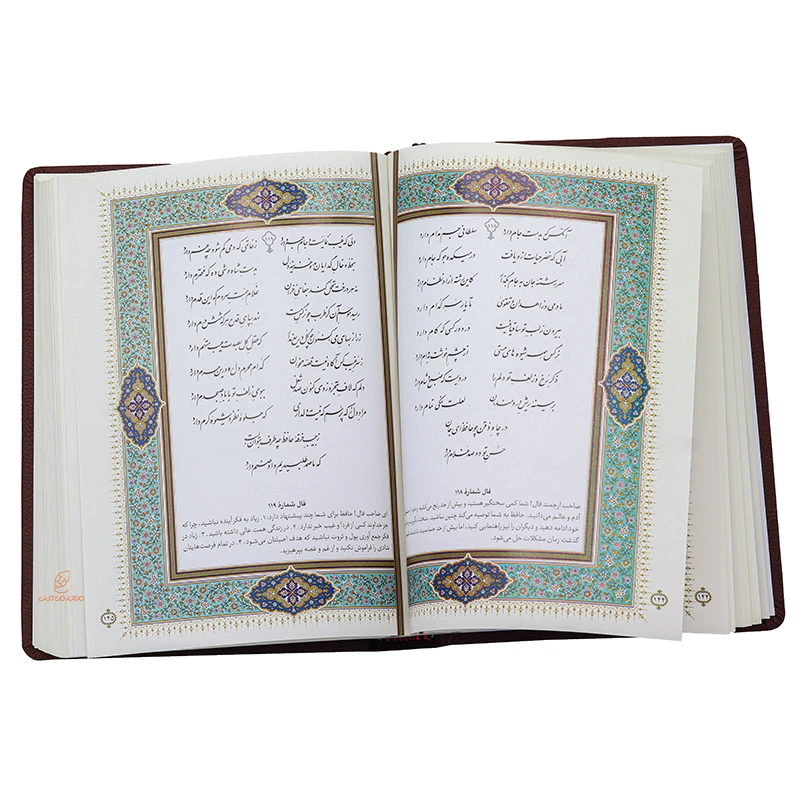 ۱۱۸
آنکس که بدست جام دارد سلطانی جم مدام دارد
آبی که خضر حیات ازو یافت در میکده جو که جام دارد
سررشته جان به جام بگذار کاین رشته از او نظام دارد
ما و می و زاهدان و تقوی تا یار سر کدام دارد
بیرون ز لب تو ساقیا نیست در دور کسی که کام دارد
نرگس همه شیوه های مستی از چشم خوشت بوام دارد
ذکر رخ و زلف تو دلم را وردیست که صبح و شام دارد
بر سینه ریش دردمندان لعلت نمکی تمام دارد
در چاه ذقن چو حافظ ای جان
حسن تو دو صد غلام دارد
فال شمارهٔ ۱۱۸
صاحب ارجمند فال! شما کمی سختگیر هستید و بیش از حد رنج می‌کشید و خود را برتر از
آدم و عالم می‌دانید. حافظ به شما توصیه می‌کند چنین نباشید.
خود ادامه دهید و دیگران را نیز راهنمایی کنید، اما بیش از حد حساسیت نداشته باشید. با
گذشت زمان مشکلات حل می‌شود.
۱۱۹
دلی که غیب نمایست و جام جم دارد ز خاتمی که دمی گم شود چه غم دارد
به خط و خال گدایان مده خزینه دل بدست شاه وشی ده که محترم دارد
نه هر درخت تحمل کند جفای خزان غلام همت سروم که این قدم دارد
رسید موسم آن کز طرب چو نرگس مست نهد بپای قدح هر که شش درم دارد
زر از بهای می اکنون چو گل دریغ مدار که عقل کل بصدت عیب متهم دارد
ز سر غیب کس آگاه نیست قصه مخوان کدام محرم دل ره درین حرم دارد
دلم که لاف تجرد زدی کنون صد شغل ببوی زلف تو با باد صبحدم دارد
مراد دل ز که پرسم که نیست دلداری که جلوه نظر و شیوه کرم دارد
ز جیب خرقه حافظ چه طرف بتوان بست
که ما صمد طلبیدیم و او صنم دارد
فال شمارهٔ ۱۱۹
ای صاحب فال! حافظ برای شما چند پیشنهاد دارد: ۱. زیاد به فکر آینده نباشید، چرا که
جز خداوند کسی از فردا و غیب خبر ندارد. ۲. در زندگی همت عالی داشته باشید. ۳. زیاد در
فکر جمع آوری پول و ثروت نباشید که هدف اصیلتان می‌شود. ۴. در تمام فرصت‌هایتان
شادی را فراموش نکنید و از غم و غصه بپرهیزید.
۱۲۵
۱۲۲